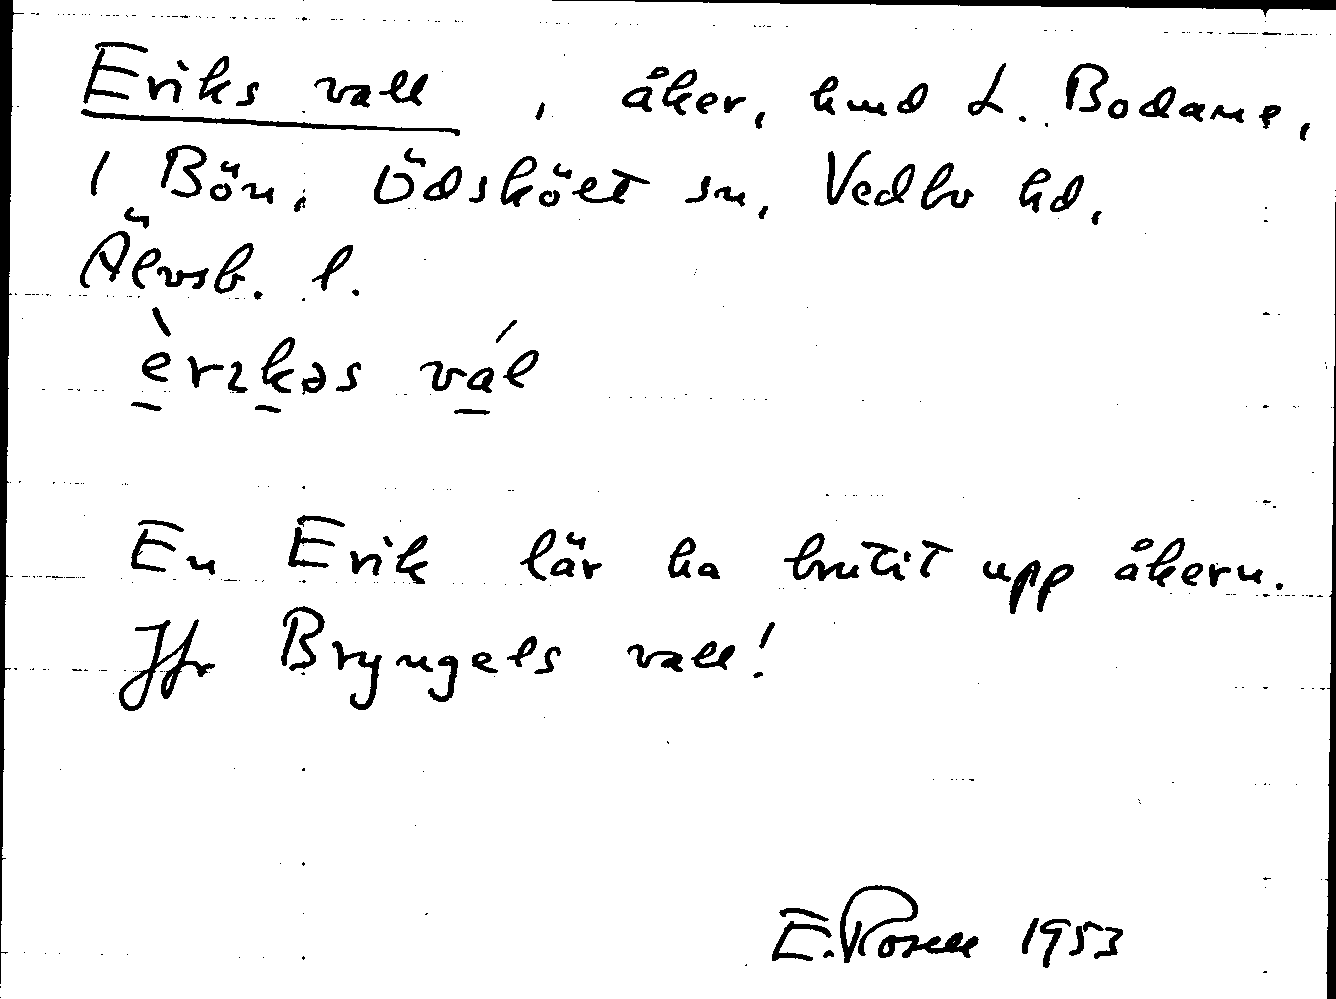 Eriks vall, åker, hmd L. Bodarne,
1 Bön, Ödskölt sn, Vedbo hd,
Älvsb. l.
èrɪkəs vál
En Erik lär ha brutit upp åkern.
Jfr Bryngels vall!
E. Rosell 1953